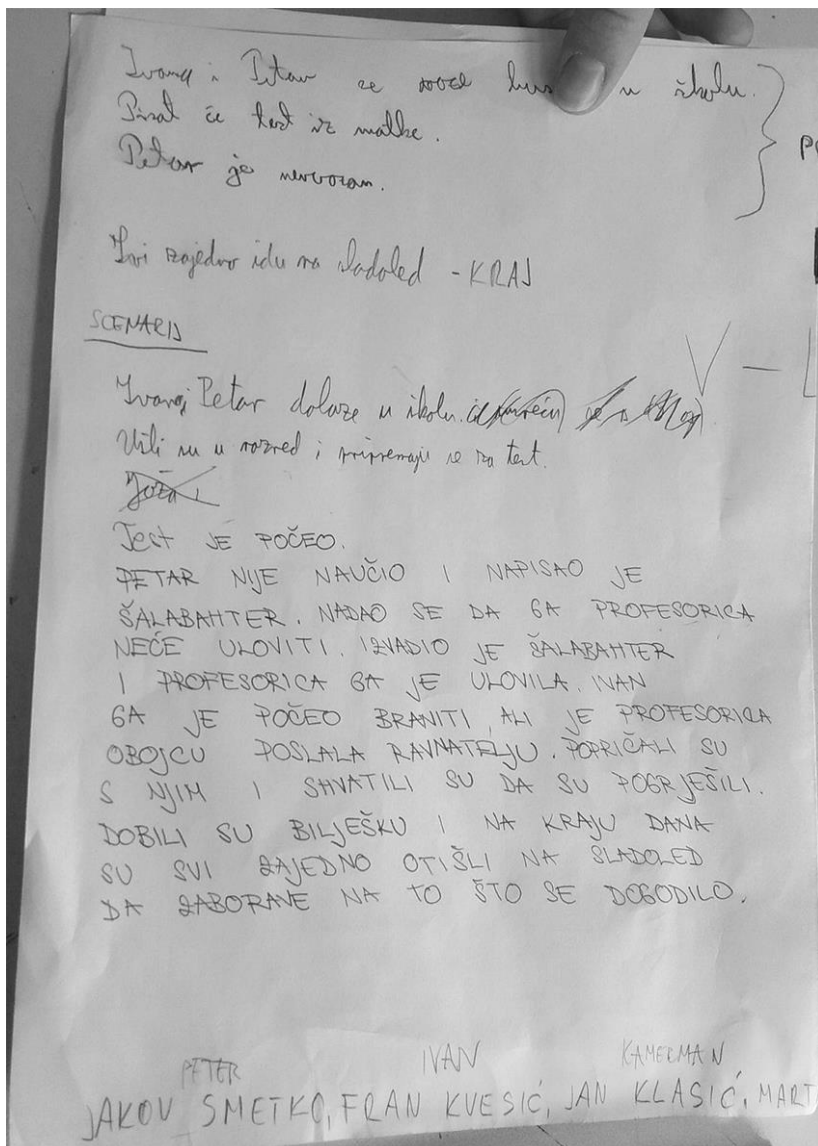 Ivan i Petar se voze bus u školu.
Pisat će test iz matke.
Petar je nervozan.
Svi zajedno idu na sladoled - KRAJ
SCENARIJ
V - L
Ivan i Petar dolaze u školu.
Ušli su u razred i pripremaju se za test.
Test JE POČEO.
PETAR NIJE NAUČIO I NAPISAO JE
ŠALABAHTER. NADAO SE DA GA PROFESORICA
NEĆE ULOVITI. IZVADIO JE ŠALABAHTER
I PROFESORICA GA JE ULOVILA. IVAN
GA JE POČEO BRANITI, ALI JE PROFESORICA
OBOJCU POSLALA RAVNATELJU. POPRIČALI SU
S NJIM I SHVATILI SU DA SU POGRJEŠILI.
DOBILI SU BILJEŠKU I NA KRAJU DANA
SU SVI ZAJEDNO OTIŠLI NA SLADOLED
DA ZABORAVE NA TO ŠTO SE DOGODILO.
PETER IVAN KAMERMAN
JAKOV SMETKO, FRAN KVESIĆ, JAN KLASIĆ, MART